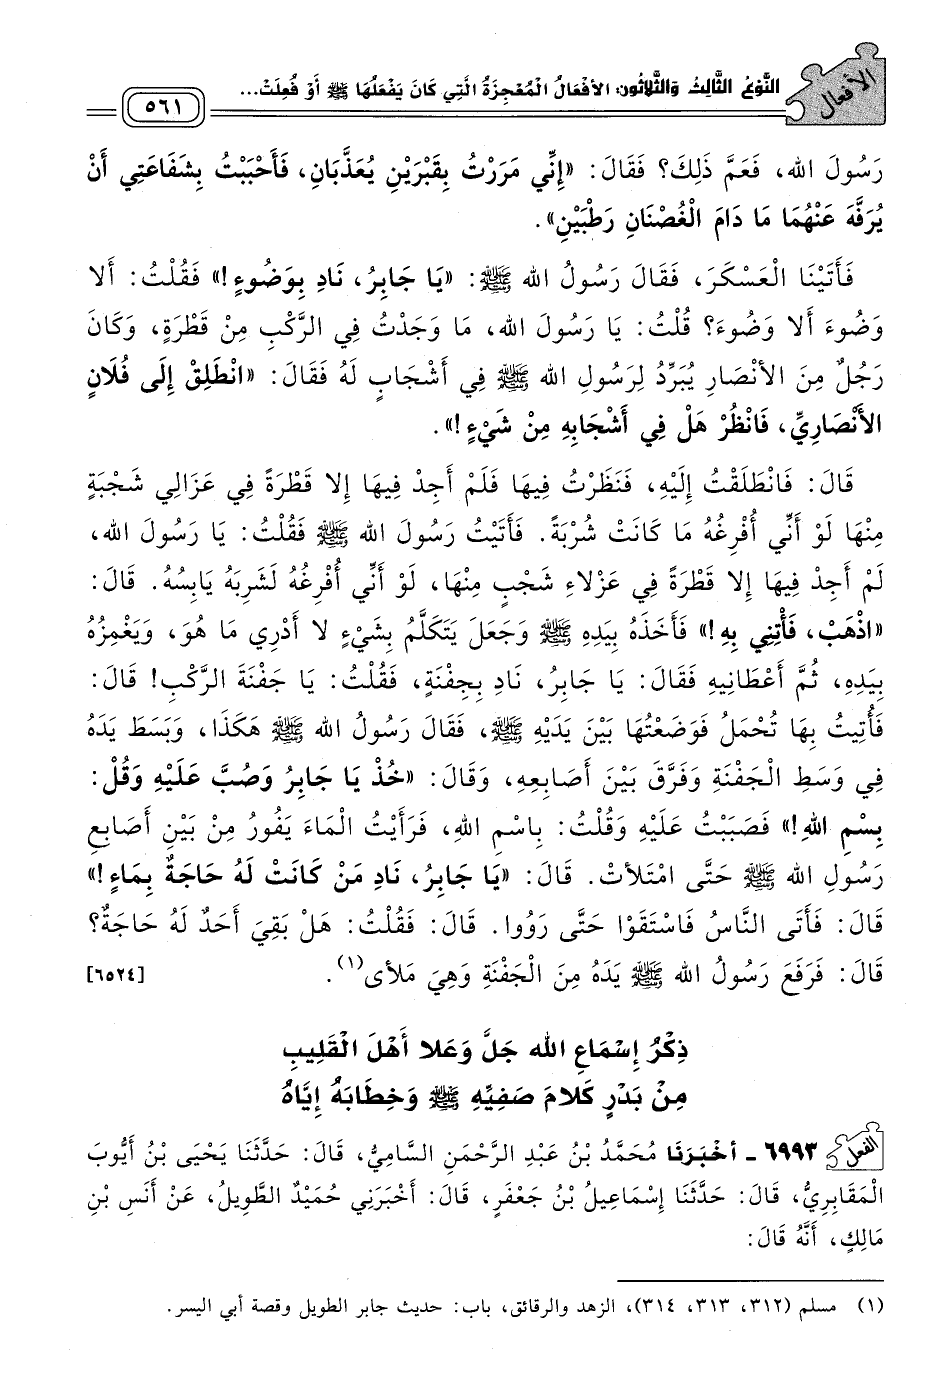 الأفعال
النَّوْعُ الثَّالِثُ وَالثَّلاثُونَ: الأَفْعَالُ الْمُعْجِزَةُ الَّتِي كَانَ يَفْعَلُهَا ﷺ أَوْ فُعِلَتْ...
٥٦١
رَسُولَ اللهِ، فَعَمَّ ذَلِكَ؟ فَقَالَ: «إِنِّي مَرَرْتُ بِقَبْرَيْنِ يُعَذَّبَانِ، فَأَحْبَبْتُ بِشَفَاعَتِي أَنْ
يُرَفَّهَ عَنْهُمَا مَا دَامَ الْغُصْنَانِ رَطْبَيْنِ».
فَأَتَيْنَا الْعَسْكَرَ، فَقَالَ رَسُولُ اللهِ ﷺ: «يَا جَابِرُ، نَادِ بِوَضُوءٍ!» فَقُلْتُ: أَلا
وَضُوءَ أَلا وَضُوءَ؟ قُلْتُ: يَا رَسُولَ اللهِ، مَا وَجَدْتُ فِي الرَّكْبِ مِنْ قَطْرَةٍ، وَكَانَ
رَجُلٌ مِنَ الأَنْصَارِ يُبَرِّدُ لِرَسُولِ اللهِ ﷺ فِي أَشْجَابٍ لَهُ فَقَالَ: «انْطَلِقْ إِلَى فُلَانٍ
الأَنْصَارِيِّ، فَانْظُرْ هَلْ فِي أَشْجَابِهِ مِنْ شَيْءٍ!».
قَالَ: فَانْطَلَقْتُ إِلَيْهِ، فَنَظَرْتُ فِيهَا فَلَمْ أَجِدْ فِيهَا إِلا قَطْرَةً فِي عَزَالِي شَجْبَةٍ
مِنْهَا لَوْ أَنِّي أُفْرِغُهُ مَا كَانَتْ شُرْبَةً. فَأَتَيْتُ رَسُولَ اللهِ ﷺ فَقُلْتُ: يَا رَسُولَ اللهِ،
لَمْ أَجِدْ فِيهَا إِلا قَطْرَةً فِي عَزْلاءِ شَجْبٍ مِنْهَا، لَوْ أَنِّي أُفْرِغُهُ لَشَرِبَهُ يَابِسُهُ. قَالَ:
«اذْهَبْ، فَأْتِنِي بِهِ!» فَأَخَذَهُ بِيَدِهِ ﷺ وَجَعَلَ يَتَكَلَّمُ بِشَيْءٍ لا أَدْرِي مَا هُوَ، وَيَغْمِزُهُ
بِيَدِهِ، ثُمَّ أَعْطَانِيهِ فَقَالَ: يَا جَابِرُ، نَادِ بِجِفْنَةٍ، فَقُلْتُ: يَا جَفْنَةَ الرَّكْبِ! قَالَ:
فَأُتِيتُ بِهَا تُحْمَلُ فَوَضَعْتُهَا بَيْنَ يَدَيْهِ ﷺ، فَقَالَ رَسُولُ اللهِ ﷺ هَكَذَا، وَبَسَطَ يَدَهُ
فِي وَسَطِ الْجَفْنَةِ وَفَرَّقَ بَيْنَ أَصَابِعِهِ، وَقَالَ: «خُذْ يَا جَابِرُ وَصُبَّ عَلَيْهِ وَقُلْ:
بِسْمِ اللهِ!» فَصَبَبْتُ عَلَيْهِ وَقُلْتُ: بِاسْمِ اللهِ، فَرَأَيْتُ الْمَاءَ يَفُورُ مِنْ بَيْنِ أَصَابِعِ
رَسُولِ اللهِ ﷺ حَتَّى امْتَلأَتْ. قَالَ: «يَا جَابِرُ، نَادِ مَنْ كَانَتْ لَهُ حَاجَةٌ بِمَاءٍ!»
قَالَ: فَأَتَى النَّاسُ فَاسْتَقَوْا حَتَّى رَوُوا. قَالَ: فَقُلْتُ: هَلْ بَقِيَ أَحَدٌ لَهُ حَاجَةٌ؟
قَالَ: فَرَفَعَ رَسُولُ اللهِ ﷺ يَدَهُ مِنَ الْجَفْنَةِ وَهِيَ مَلأَى(١). [٦٥٢٤]
ذِكْرُ إِسْمَاعِ اللهِ جَلَّ وَعَلا أَهْلَ الْقَلِيبِ
مِنْ بَدْرٍ كَلامَ صَفِيِّهِ ﷺ وَخِطَابَهُ إِيَّاهُ
الفعل ٦٩٩٣ ـ أَخْبَرَنَا مُحَمَّدُ بْنُ عَبْدِ الرَّحْمَنِ السَّامِيُّ، قَالَ: حَدَّثَنَا يَحْيَى بْنُ أَيُّوبَ
الْمَقَابِرِيُّ، قَالَ: حَدَّثَنَا إِسْمَاعِيلُ بْنُ جَعْفَرٍ، قَالَ: أَخْبَرَنِي حُمَيْدٌ الطَّوِيلُ، عَنْ أَنَسِ بْنِ
مَالِكٍ، أَنَّهُ قَالَ:
(١) مسلم (٣١٢، ٣١٣، ٣١٤)، الزهد والرقائق، باب: حديث جابر الطويل وقصة أبي اليسر.